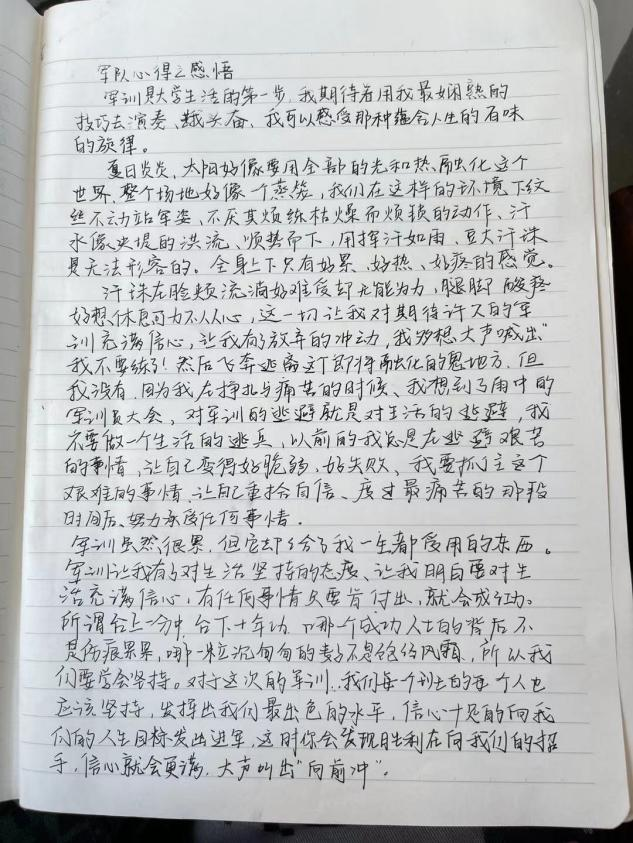 军队心得之感悟
军训是大学生活的第一步，我期待着用我最娴熟的
技巧去演奏、我兴奋、我可以感受那种蕴含人生的百味
的旋律。
夏日炎炎，太阳好像要用全部的光和热融化这个
世界，整个场地好像一个蒸笼，我们在这样的环境下纹
丝不动站军姿、不厌其烦练枯燥而烦琐的动作、汗
水像决堤的洪流、顺势而下，用挥汗如雨、豆大汗珠
是无法形容的。全身上下只有好累、好热、好疼的感觉。
汗珠在脸颊流淌好难受却无能为力，腿脚酸疼
好想休息可力不从心，这一切让我对期待许久的军
训充满信心，让我有了放弃的冲动，我多想大声喊出“
我不要练了！然后飞奔逃离这了即将融化的鬼地方，但
我没有，因为我在挣扎与痛苦的时候、我想到了雨中的
军训员大会、对军训的逃避就是对生活的逃避，我
不要做一个生活的逃兵，以前的我总是在逃避艰苦
的事情，让自己变得好脆弱，好失败、我要抓主这个
艰难的事情，让自己重拾自信、度过最痛苦的那段
时间后、努力承受任何事情．
军训虽然很累，但它却给了我一生都受用的东西。
军训让我有了对生活坚持的态度、让我明白要对生
活充满信心，有任何事情只要肯付出，就会成功。
所谓台上一分钟，台下十年功，哪一个成功人士的背后不
是伤痕累累，哪一粒沉甸甸的麦子不是饱经风霜，所以我
们要学会坚持。对于这次的军训，我们每个到的每个人也
应该坚持，发挥出我们最出色的水平，信心十足的向我
们的人生目标发出进军，这时你会发现胜利在向我们的招
手，信心就会更满，大声叫出“向前冲”．